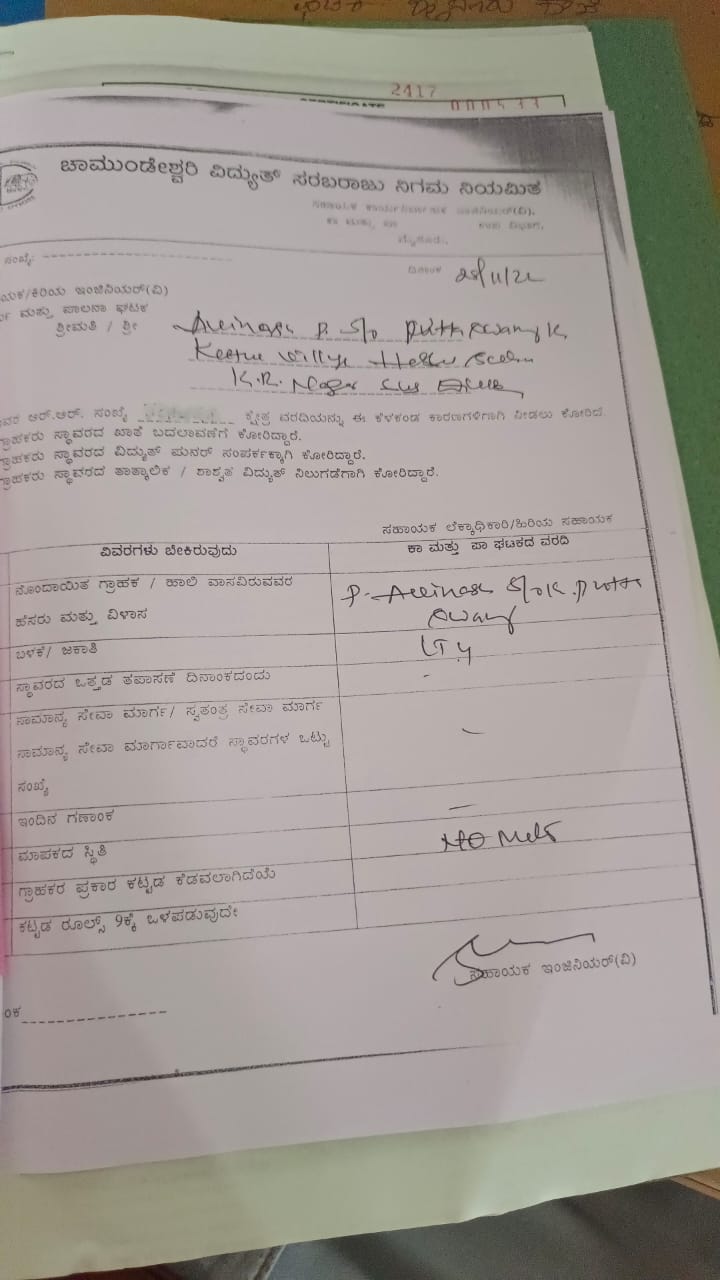 2417
CERTIFICATE
ಚಾಮುಂಡೇಶ್ವರಿ ವಿದ್ಯುತ್ ಸರಬರಾಜು ನಿಗಮ ನಿಯಮಿತ
ಸಂಖ್ಯೆ:
ದಿನಾಂಕ
ಯಕ/ಕಿರಿಯ ಇಂಜಿನಿಯರ್(ವಿ)
ಮತ್ತು ಪಾಲನಾ ಘಟಕ
ಶ್ರೀಮತಿ / ಶ್ರೀ Avinash P. S/o
K.R. Nagar
ಆರ್.ಆರ್. ಸಂಖ್ಯೆ ಕ್ಷೇತ್ರ ವರದಿಯನ್ನು ಈ ಕೆಳಕಂಡ ಕಾರಣಗಳಿಗಾಗಿ ನೀಡಲು ಕೋರಿದೆ.
ಗ್ರಾಹಕರು ಸ್ಥಾವರದ ಖಾತೆ ಬದಲಾವಣೆಗೆ ಕೋರಿದ್ದಾರೆ.
ಗ್ರಾಹಕರು ಸ್ಥಾವರದ ವಿದ್ಯುತ್ ಪುನರ್ ಸಂಪರ್ಕಕ್ಕಾಗಿ ಕೋರಿದ್ದಾರೆ.
ಗ್ರಾಹಕರು ಸ್ಥಾವರದ ತಾತ್ಕಾಲಿಕ / ಶಾಶ್ವತ ವಿದ್ಯುತ್ ನಿಲುಗಡೆಗಾಗಿ ಕೋರಿದ್ದಾರೆ.
ಸಹಾಯಕ ಲೆಕ್ಕಾಧಿಕಾರಿ/ಹಿರಿಯ ಸಹಾಯಕ
ವಿವರಗಳು ಬೇಕಿರುವುದು
ಕಾ ಮತ್ತು ಪಾ ಘಟಕದ ವರದಿ
ನೊಂದಾಯಿತ ಗ್ರಾಹಕ / ಹಾಲಿ ವಾಸವಿರುವವರ
ಹೆಸರು ಮತ್ತು ವಿಳಾಸ
P. Avinash S/o K. Putta
Swamy
ಬಳಕೆ/ ಜಕಾತಿ
LT4
ಸ್ಥಾವರದ ಒತ್ತಡ ತಪಾಸಣೆ ದಿನಾಂಕದಂದು
-
ಸಾಮಾನ್ಯ ಸೇವಾ ಮಾರ್ಗ/ ಸ್ವತಂತ್ರ ಸೇವಾ ಮಾರ್ಗ
ಸಾಮಾನ್ಯ ಸೇವಾ ಮಾರ್ಗಾವಾದರೆ ಸ್ಥಾವರಗಳ ಒಟ್ಟು
ಸಂಖ್ಯೆ
-
ಇಂದಿನ ಗಣಾಂಕ
-
ಮಾಪಕದ ಸ್ಥಿತಿ
ಗ್ರಾಹಕರ ಪ್ರಕಾರ ಕಟ್ಟಡ ಕೆಡವಲಾಗಿದೆಯೆ
ಕಟ್ಟಡ ರೂಲ್ಸ್ 9ಕ್ಕೆ ಒಳಪಡುವುದೇ
ಸಹಾಯಕ ಇಂಜಿನಿಯರ್(ವಿ)